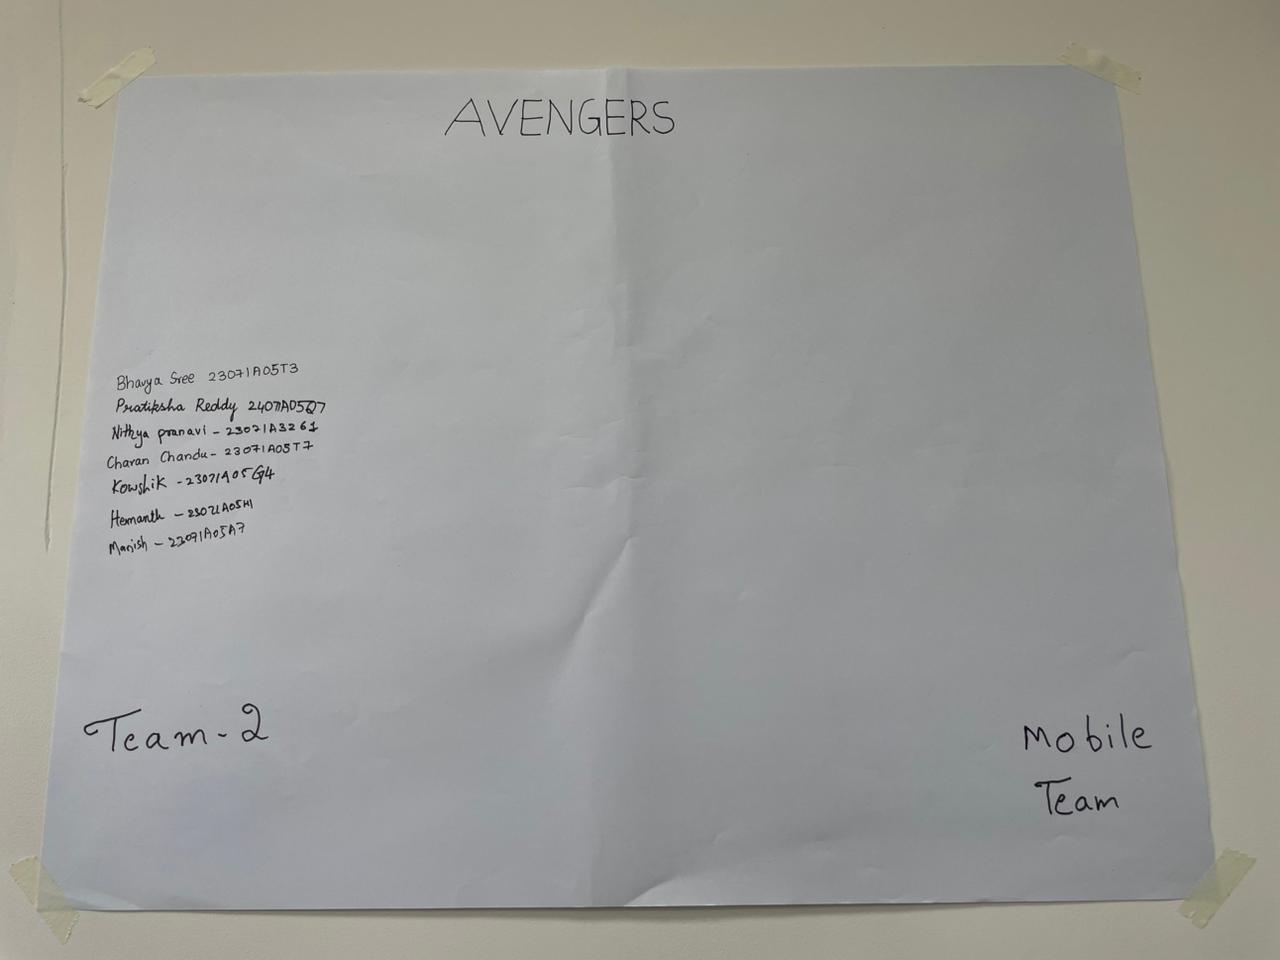 AVENGERS
Bhavya Sree 23071A05T3
Pratiksha Reddy 24071A05Q7
Nithya pranavi - 23071A3261
Charan Chandu - 23071A05T7
Kowshik - 23071A05G4
Hemanth - 23071A05H1
Manish - 23071A05A7
Team-2
Mobile
Team